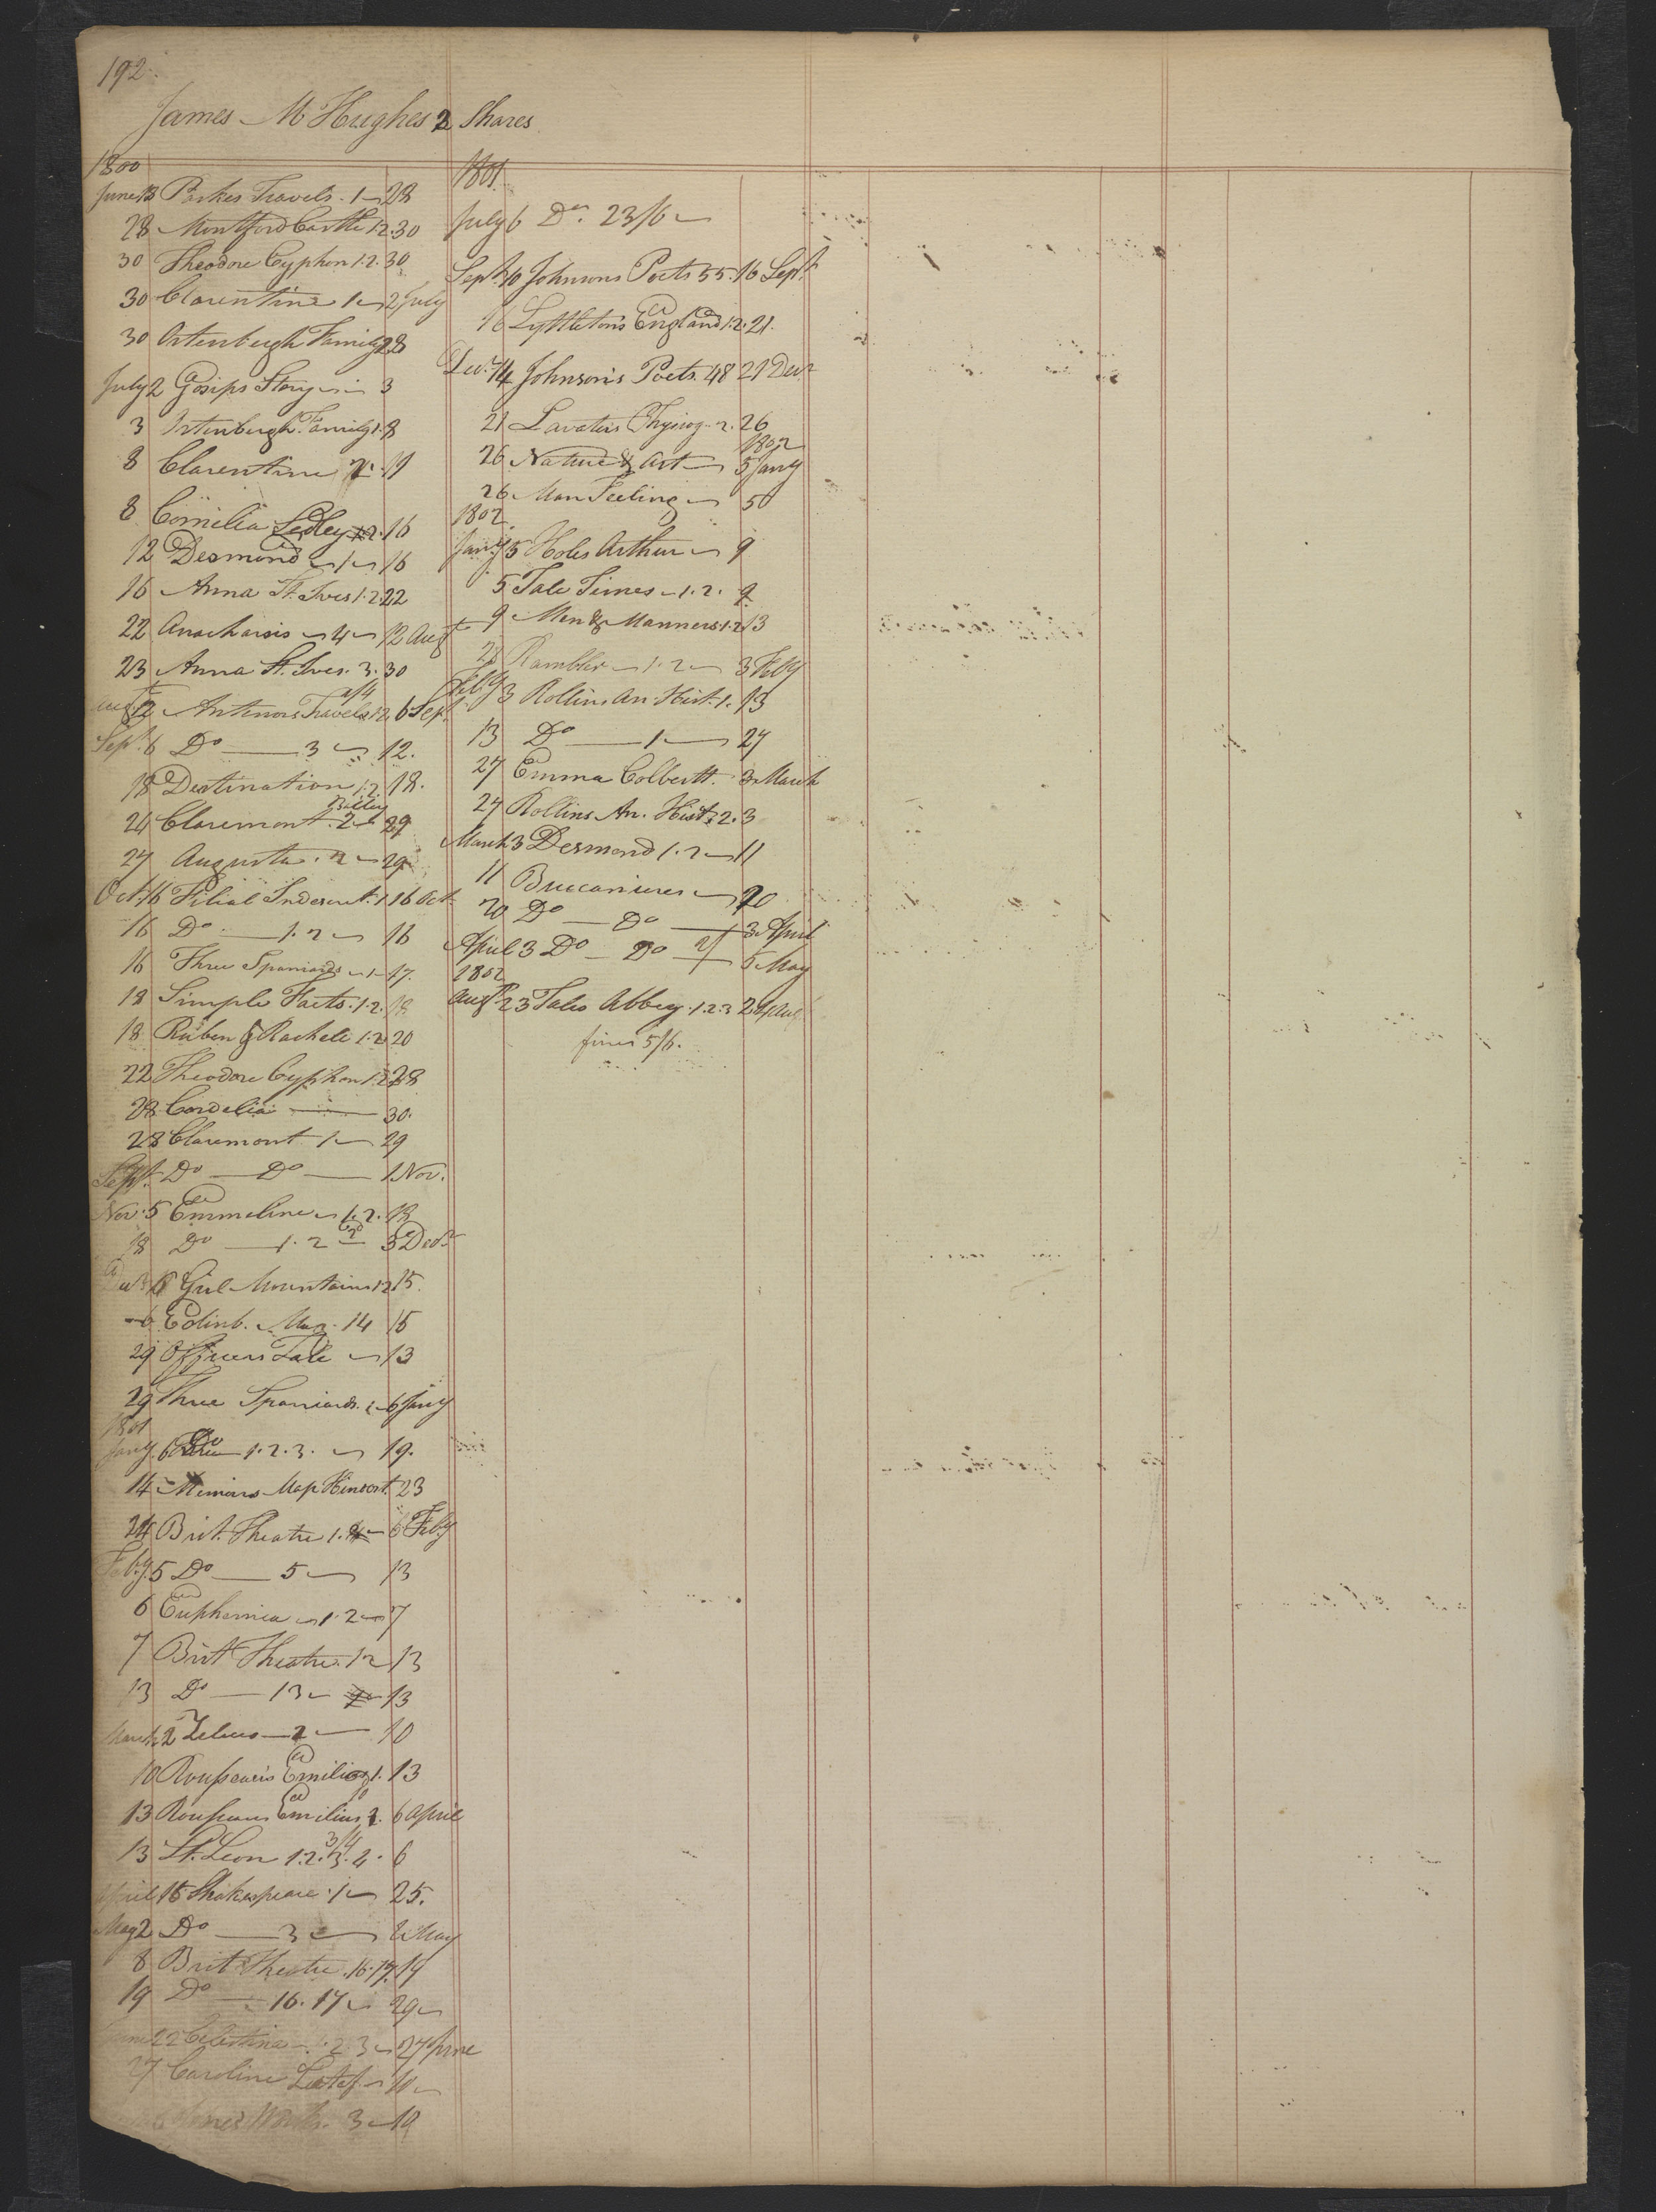 192.
James M Hughes 2 Shares
1800
June 13 Parkes Travels. 1 28
28 Montford Castle 1.2. 30
30 Theodore Cyphon 1.2. 30
30 Clarentine 1 2 July
30 Ortenburgh Family 28
July 2 Gosips Story 3
3 Ortenburgh Family 1. 8
8 Clarentine 11
8 Cornelia Sedley 16
12 Desmond 1 16
16 Anna St. Ives 1.2. 22
22 Anacharsis 4 12 Augt
23 Anna St. Ives. 3. 30
Augt 12 Antenors Travels 1.2. 6 Sept.
Sept. 6 Do 3 12.
18 Destination 1.2. 18.
24 Claremont. 2 29
27 Augusta. 2 29
Oct. 16 Filial Indescret. 1 16 Oct
16 Do 1.2 16
16 Three Spaniards 1 17.
18 Simple Facts. 1.2. 18
18 Ruben & Rachell 1.2 20
22 Theodore Cyphon 1.2 28
28 Cordelia 30.
28 Claremont 1 29
Sept. Do Do 1 Nov.
Nov. 5 Emmeline 1.2. 18
18 Do 1.2 3 Decr
6 Girl Mountains 1.2 15.
6 Edinb. Mag. 14 15
29 Officers Tale 13
29 Three Spaniards. 6 Jany
1801
Jany. 6 Do 1.2.3. 19.
14 Memoirs Map Hindost. 23
24 Brit. Theatre 1. 6 Feby
Feby. 5 Do 5 13
6 Euphemia 1.2 7
7 Brit Theatre. 12 13
13 Do 13 13
March 2 Zeluco 2 10
10 Rousseau's Emilius 1. 13
13 Rousseaus Emilius 2. 6 April
13 St. Leon 1.2.3.4. 6
April 15 Shakespeare. 1 25.
May 2 Do 3 8 May
8 Brit Theatre. 16.17. 19
19 Do 16.17 29
June 22 Celestina 1.2 3 27 June
27 Caroline 10
Works. 3 10
1801.
July 6 Do. 23/6
Sept. 10 Johnsons Poets 55. 16 Sept.
16 Lyttletons England 1.2. 21.
Decr. 14 Johnson's Poets. 48 21 Decr
21 Lavaters Physiog. 2. 26
1802
26 Nature & Art 5 Jany
26 Man Feeling 5
1802
Jany 5 Holes Arthur 9
5 Tale Times 1.2. 9
9 Men & Manners 1.2 13
28 Rambler 1.2 3 Feby
Feby 3 Rollins An. Hist. 1. 13
13 Do 1 27
27 Emma Colbertt. 3 March
27 Rollins An. Hist. 2. 3
March 3 Desmond 1.2 11
11 Buccaniers 20
20 Do Do 3 April
April 3 Do Do 5 May
1802
Augt 23 Tales Abbey. 1.2.3 24 Aug
fines 5/6.